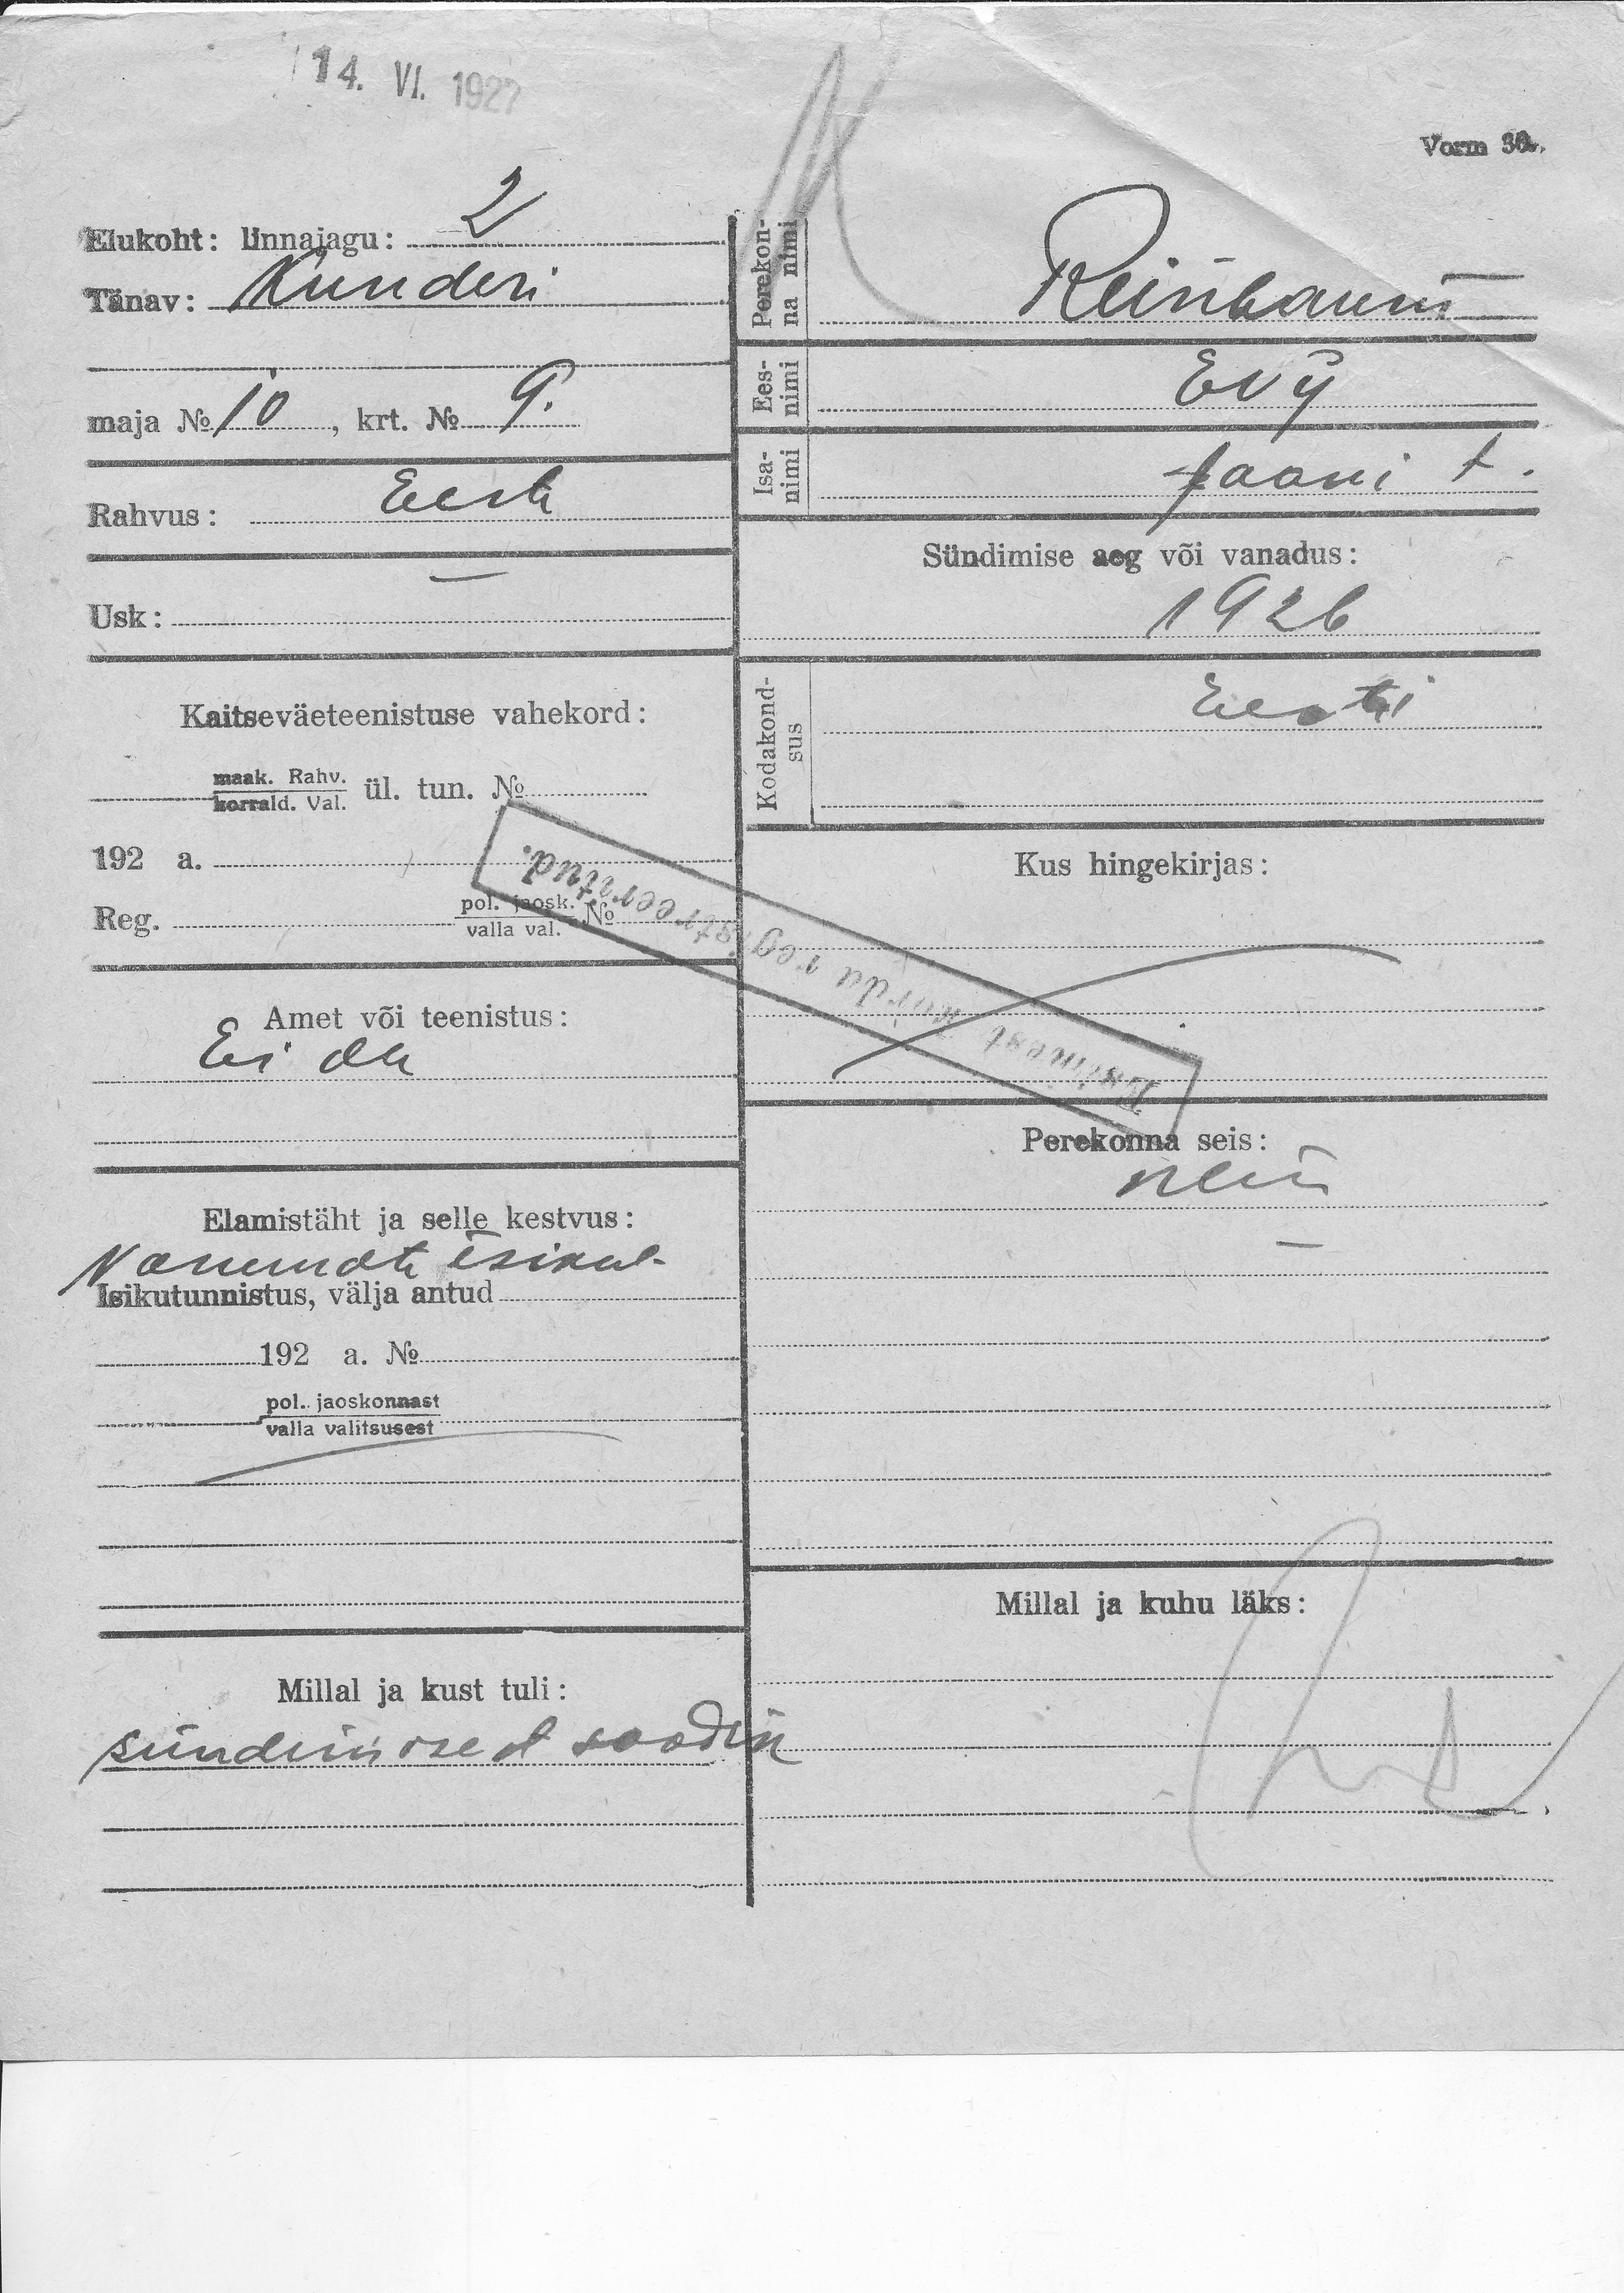 14. VI. 1927
Vorm 30.
Elukoht: linnajagu: 2
Tänav: Kunderi
maja № 10, krt. № 9.
Rahvus: Eesti
Usk: —
Kaitseväeteenistuse vahekord:
maak. Rahv.
korrald. Val. ül. tun. №
192 a.
Reg. pol. jaosk. №
valla val.
Amet või teenistus:
Ei ole
Elamistäht ja selle kestvus:
Vanemate
Isikutunnistus, välja antud
192 a. №
pol. jaoskonnast
valla valitsusest
Millal ja kust tuli:
sündimisest saadik
Perekon-
na nimi
Reinbaum
Ees-
nimi
Evy
Isa-
nimi
Jaani t.
Sündimise aeg või vanadus:
1926
Kodakond-
sus
Eesti
Kus hingekirjas:
Esimest korda registreeritud.
Perekonna seis:
neiu
—
Millal ja kuhu läks: